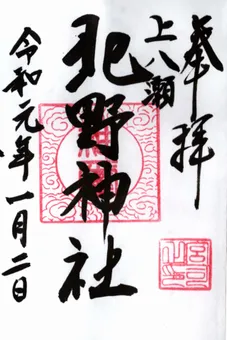 奉拝
上八瀬
北野神社
令和元年一月二日